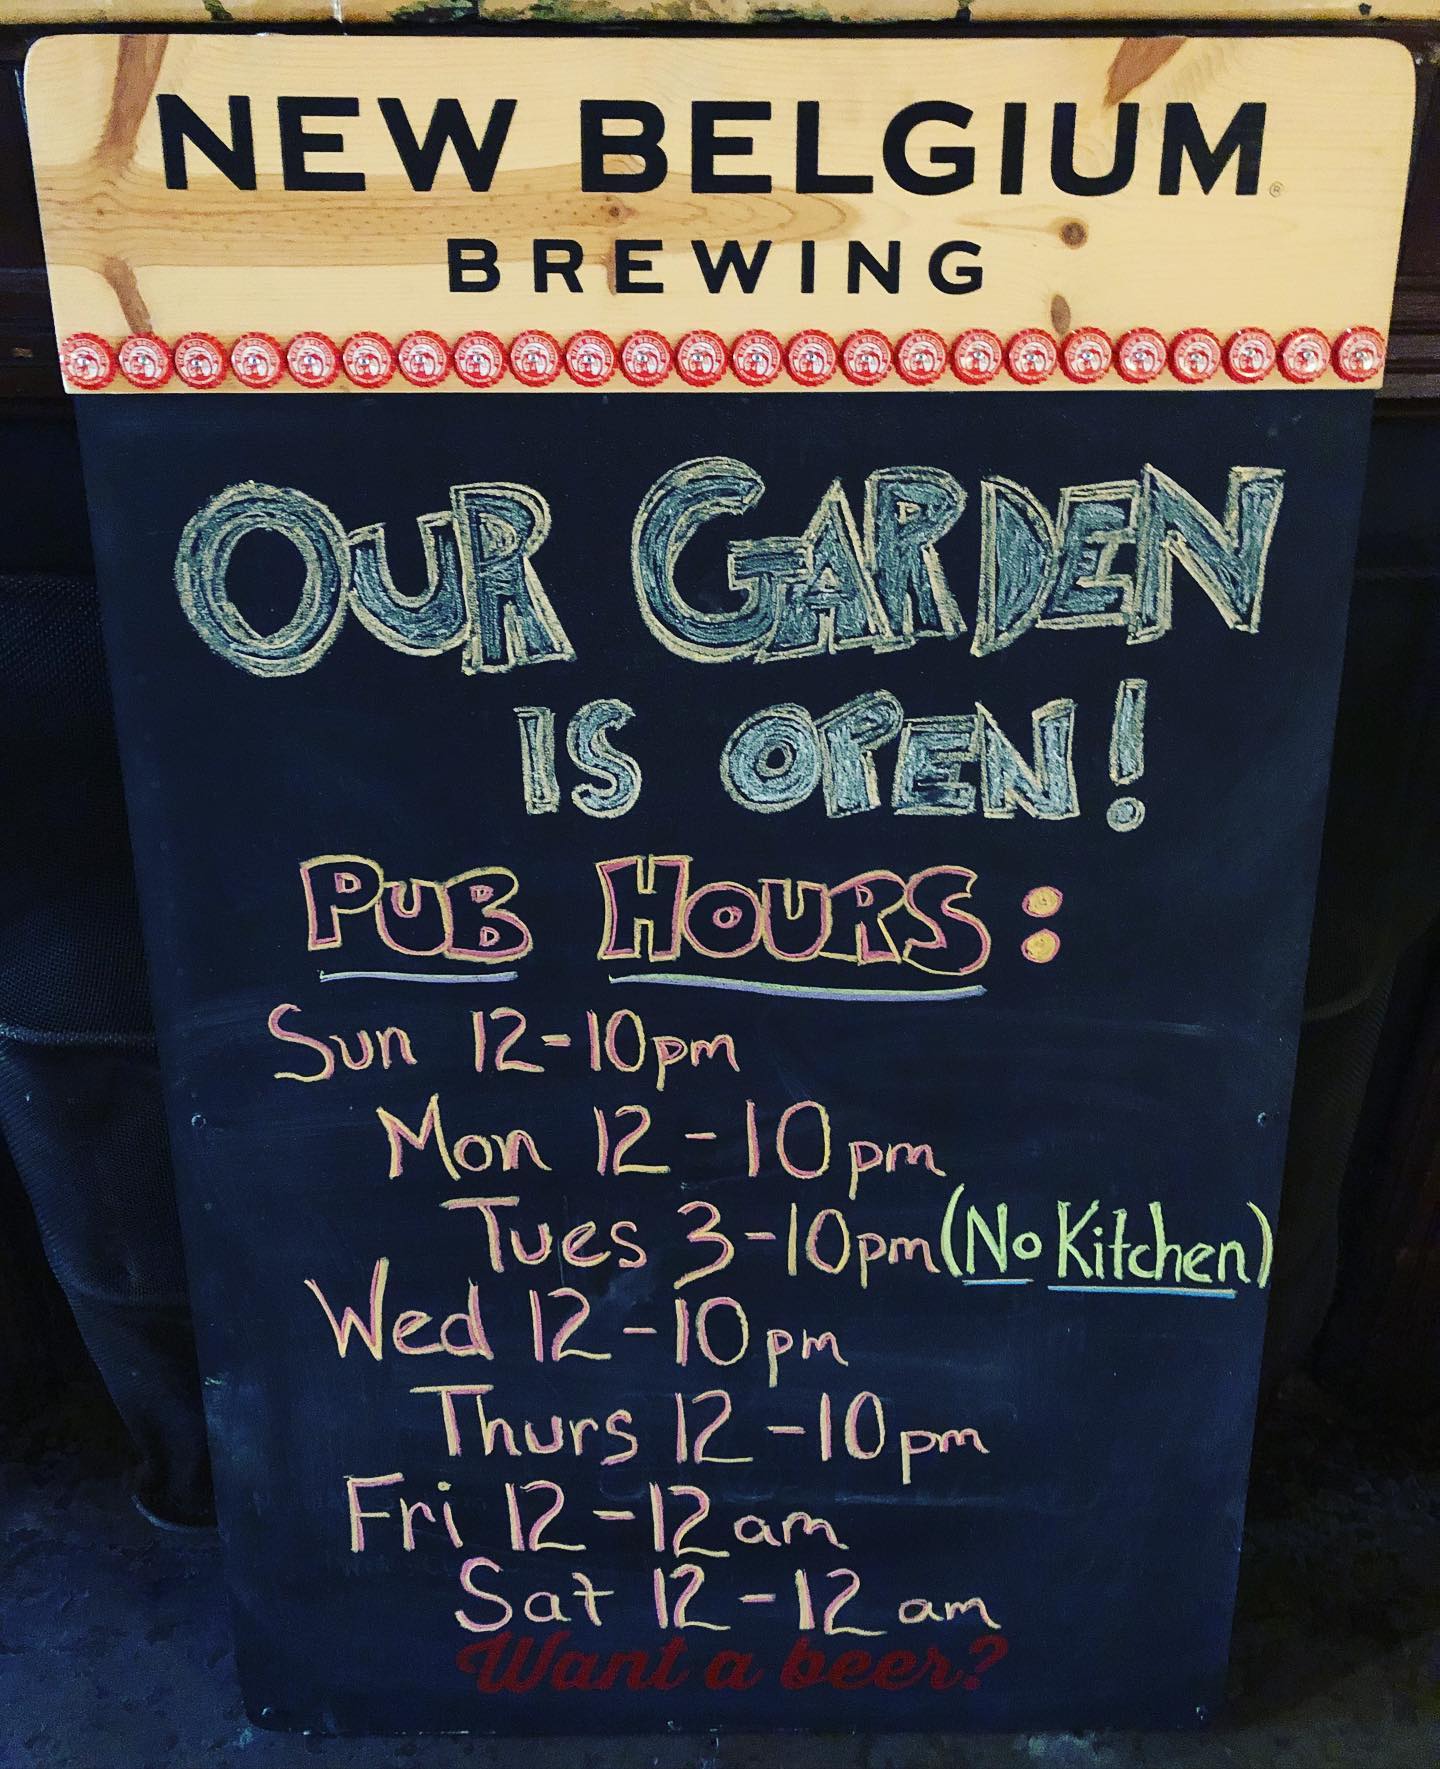 NEW BELGIUM®
BREWING
OUR GARDEN
IS OPEN!
PUB HOURS:
Sun 12-10pm
Mon 12-10pm
Tues 3-10pm (No Kitchen)
Wed 12-10pm
Thurs 12-10pm
Fri 12-12am
Sat 12-12am
Want a beer?